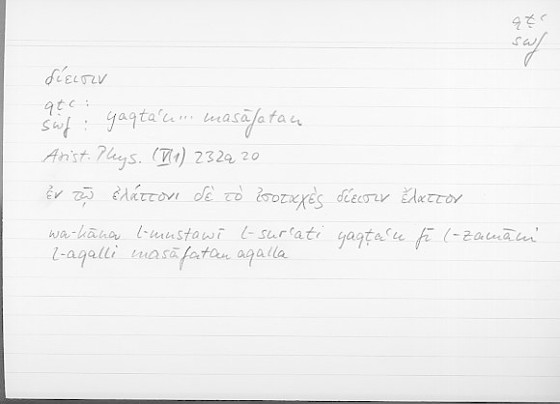 qṭʿ
swf
δίεισιν
qṭʿ :
swf : yaqṭaʿu... masāfatan
Arist. Phys. (VI 1) 232a20
ἐν τῷ ἐλάττονι δὲ τὸ ἰσοταχὲς δίεισιν ἔλαττον
wa-kāna l-mustawī l-surʿati yaqṭaʿu fī l-zamāni
l-aqalli masāfatan aqalla